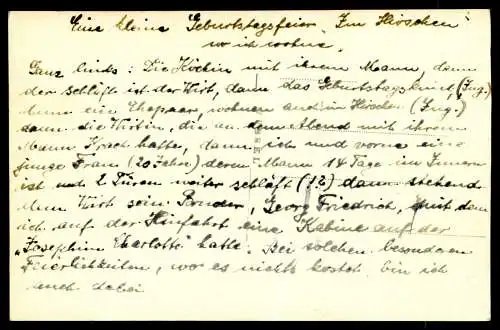 Eine kleine Geburtstagsfeier "Im Hirschen"
wo ich wohne.
Ganz links: Die Köchin mit ihrem Mann, dann
der schläft ist der Wirt, dann das Geburtstagskind, (Ing.)
dann ein Ehepaar, wohnen auch im Hirschen (Ing.)
dann die Wirtin, die an dem Abend mit ihrem
Mann Krach hatte, dann ich und vorne eine
junge Frau (20 Jahre) deren Mann 14 Tage im Innern
ist und 2 Türen weiter schläft (12) dann stehend
dem Wirt sein Bruder, Georg Friedrich, mit dem
ich auf der Hinfahrt eine Kabine auf der
"Josephine Charlotte" hatte. Bei solchen besonderen
Feierlichkeiten, wo es nichts kostet bin ich
auch dabei